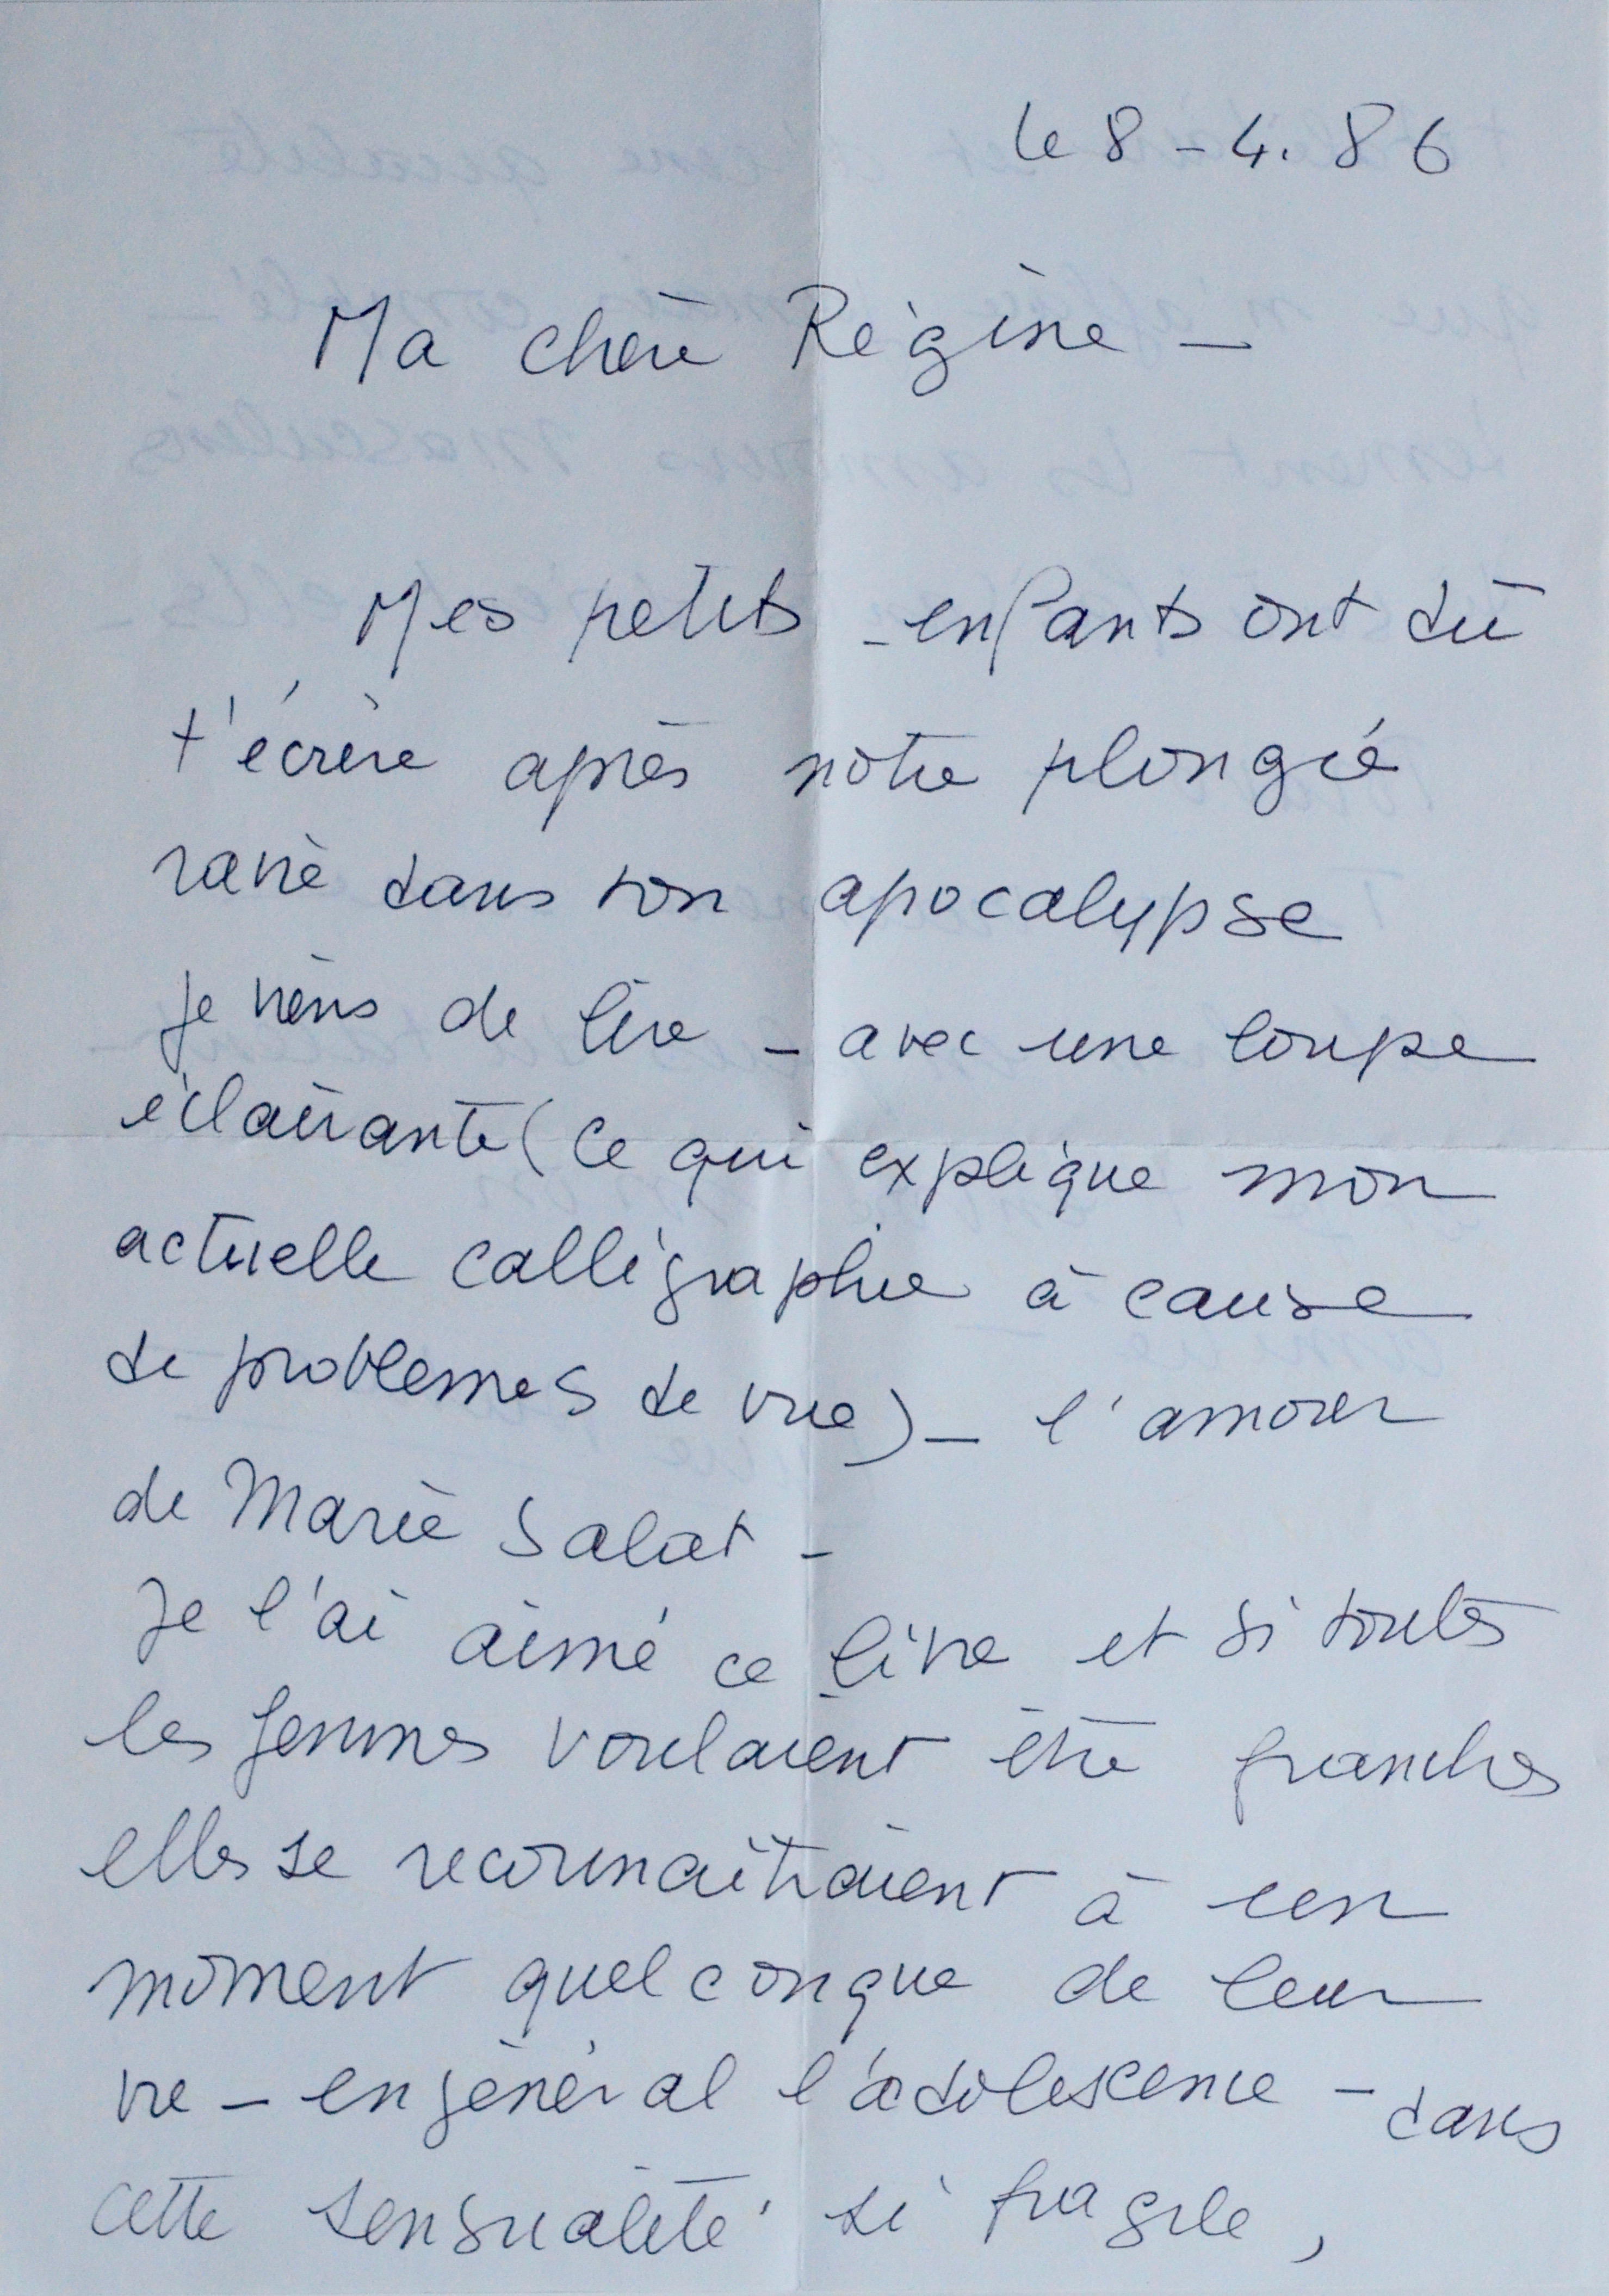 le 8 - 4. 86
Ma chère Régine -
Mes petits - enfants ont dû
t'écrire après notre plongée
ravie dans ton apocalypse
je viens de lire - avec une loupe
éclairante (ce qui explique mon
actuelle calligraphie à cause
de problemes de vue) - l'amour
de Marie Salat -
Je l'ai aimé ce livre et si toutes
les femmes voulaient être franches
elles se reconnaitraient à un
moment quelconque de leur
vie - en général l'adolescence - dans
cette sensualité si fragile,